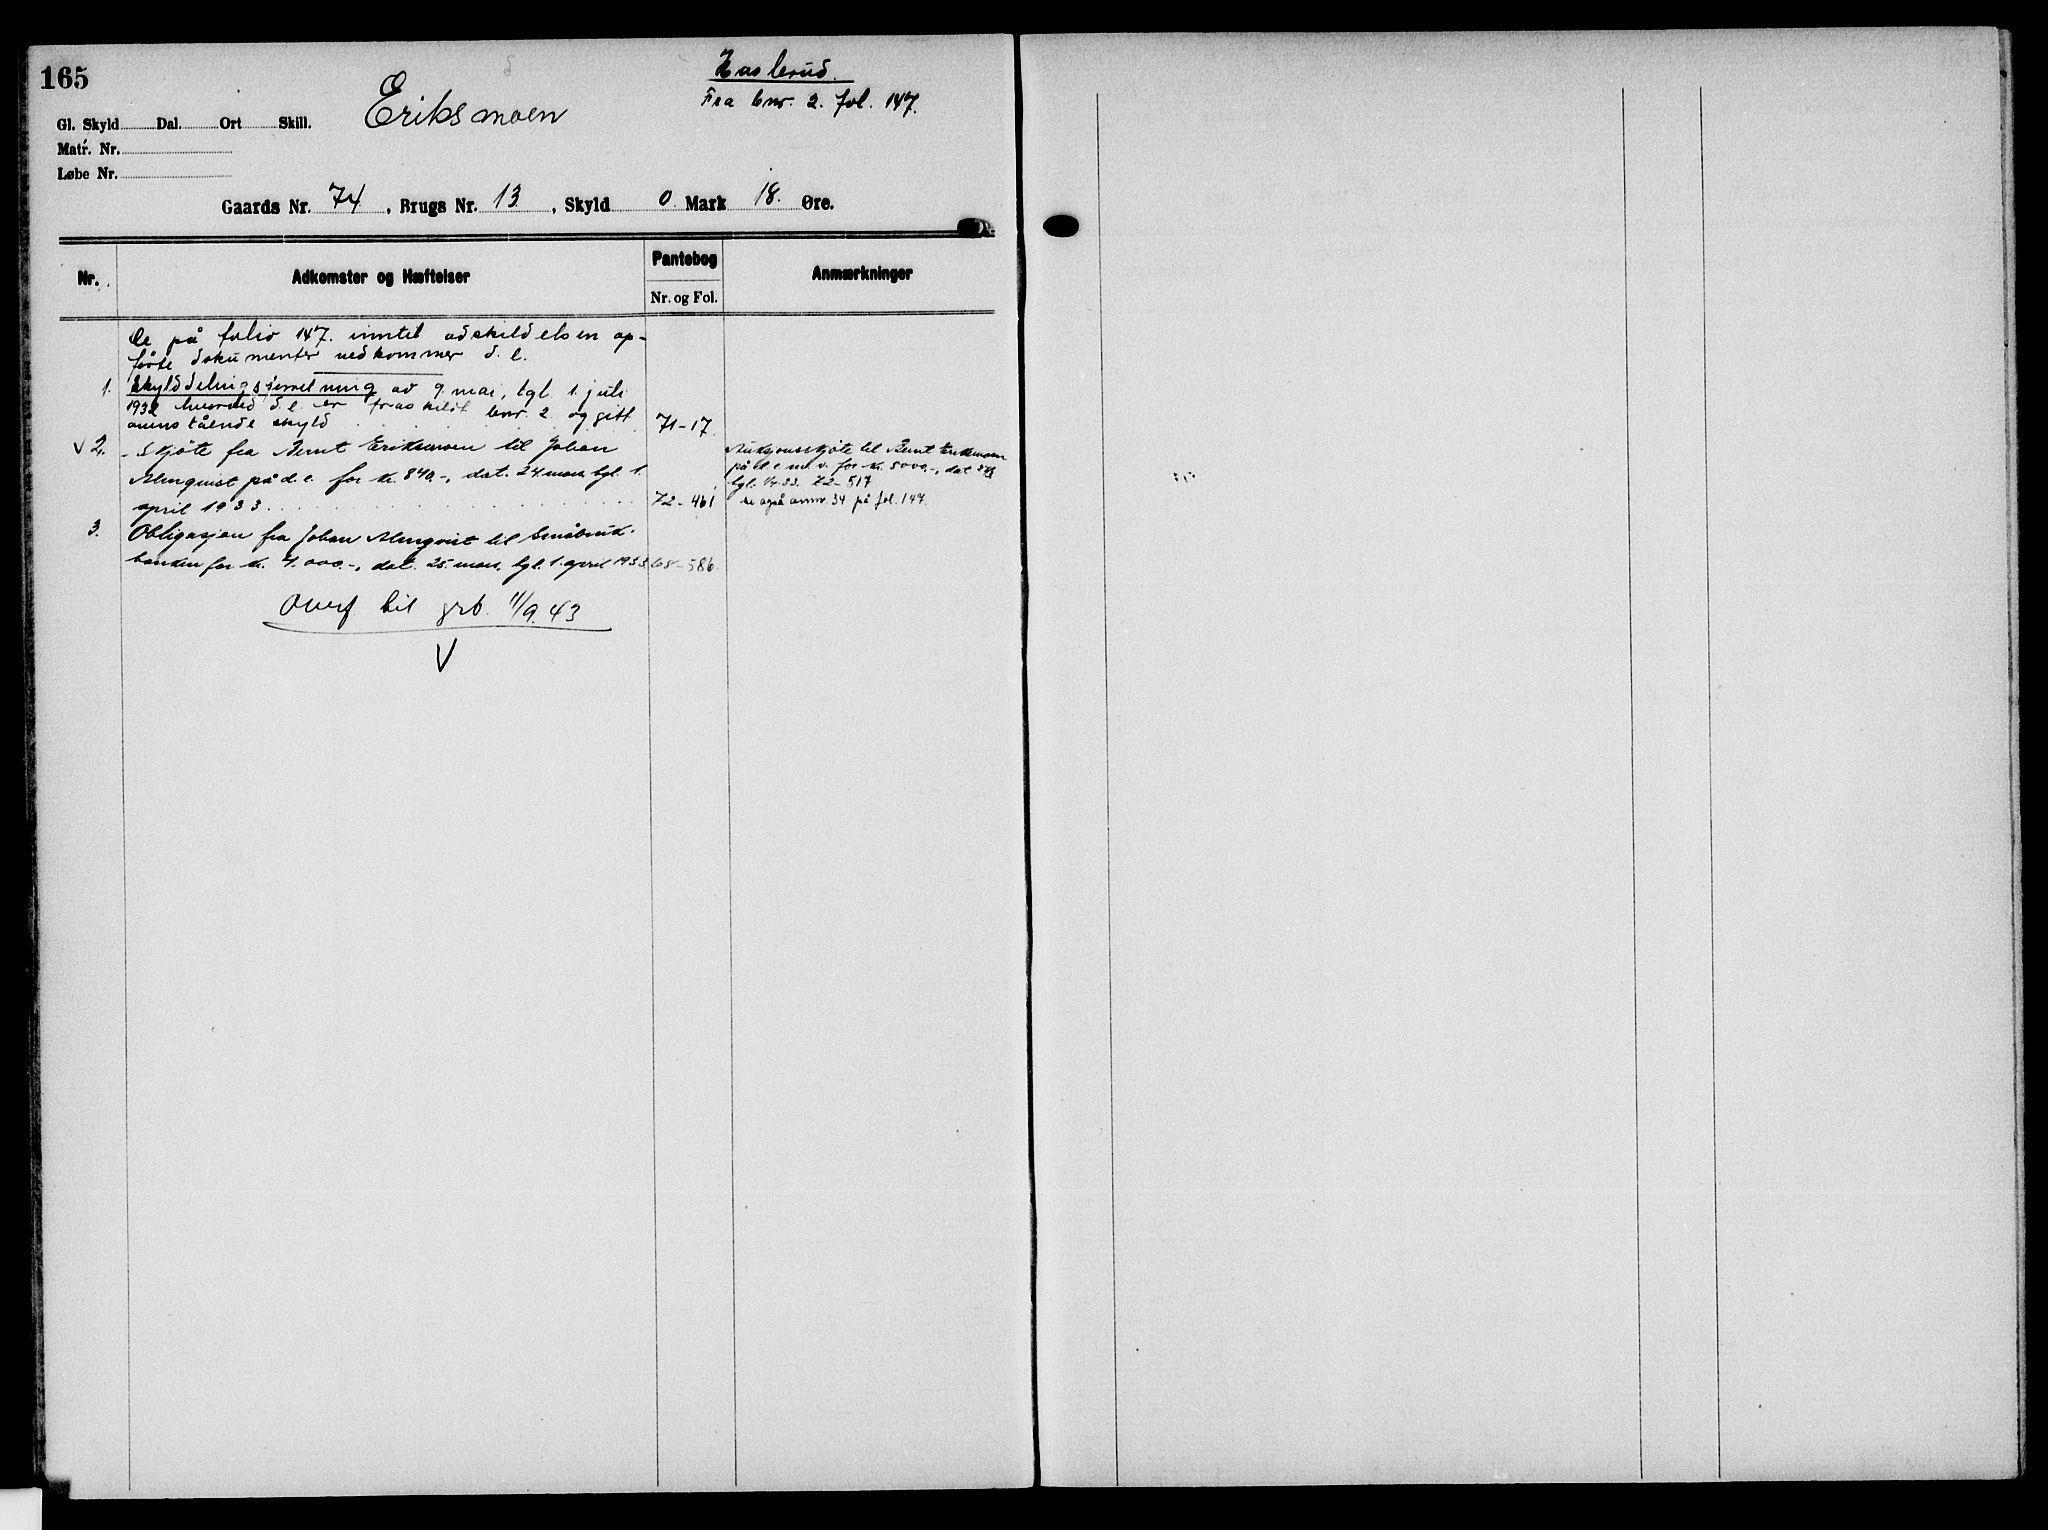 165
Eriksmoen
Haslerud.
Fra bnr. 2. fol. 147.
Gl. Skyld Dal. Ort Skill.
Matr. Nr.
Løbe Nr.
Gaards Nr. 74, Brugs Nr. 13, Skyld 0 Mark 18. Øre.
Nr. Adkomster og Hæftelser Pantebog Anmærkninger
Nr. og Fol.
De på folio 147. inntil adskildelsen op-
førte dokumenter vedkommer d. e.
1. Skylddelingsforretning av 9. mai, tgl 1. juli
1932 hvorved d. e. er fraskildt bnr. 2. og gitt
ovenstående skyld 71-17.
V 2. Skjøte fra Bernt Eriksmoen til Johan
Almquist på d. e. for kr. 840.-, dat. 24 mars tgl. 1.
april 1933. 72-461
Auksjonsskjøte til Bernt Eriksmoen
på d. e. m. v. for kr. 5000.-, dat
tgl. 1/4.33. 72-517
se også anm. 34 på fol. 147.
3. Obligasjon fra Johan Almqvist til Småbruk-
banken for kr. 4.000.-, dat. 25. mars, tgl. 1. april 1933 68-586
Overf til grb. 11/9.43
V